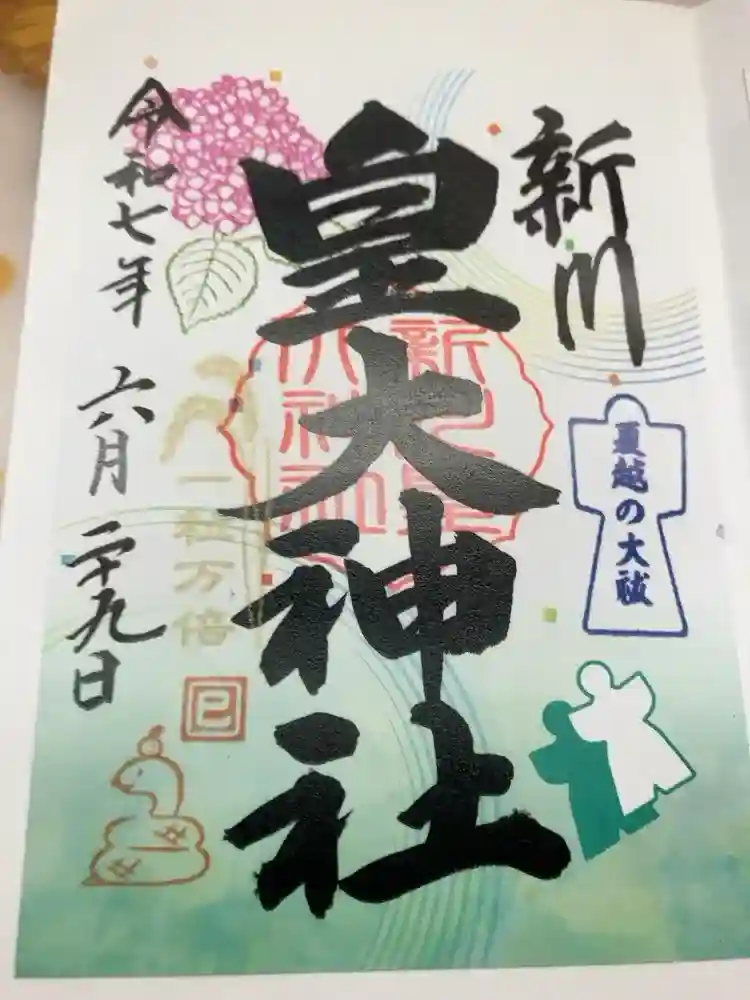 新川
夏越の大祓
皇大神社
一粒万倍
巳
令和七年 六月 二十九日